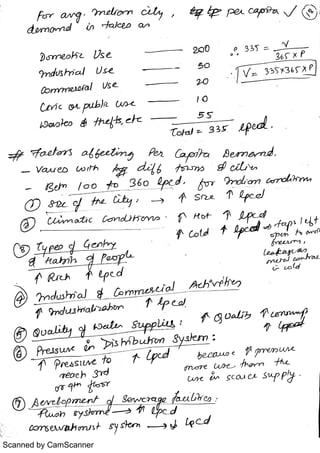 for avg. Indian city, per capita ✓ (19)
demand is taken as
Domestic Use — 200
Industrial Use — 50
Commercial Use — 20
Civic or public use — 10
Wastes & thefts, etc — 55
Total = 335 lpcd.
∴ 335 = V / 365 × P
V = 335×365×P
# Factors affecting Per Capita Demand.
- Varies with diff towns & cities
- Betn 100 to 360 lpcd, for Indian conditions
① Size of the City: → ↑ Size ↑ lpcd
② Climatic Conditions: ↑ Hot ↑ lpcd
↑ Cold ↑ lpcd → taps left
open to avoid
freezing,
leakage as
metal contrac
in cold
③ Types of Gentry
& Habits of People
↑ Rich ↑ lpcd
④ Industrial & Commercial Activities
↑ Industrialization ↑ lpcd
⑤ Quality of Water Supplies: ↑ Quality ↑ consump
↑ lpcd
⑥ Pressure in Distribution System:
↑ Pressure to ↑ lpcd because ↑ pressure
reach 3rd more use than the
or 4th floor use in scarce supply.
⑦ Development of Sewerage facilities:
flush system → ↑ lpcd
system → ↓ lpcd
Scanned by CamScanner